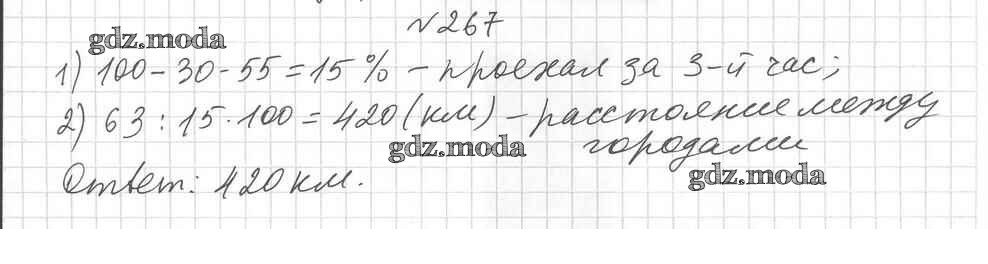 №267
gdz.moda
1) 100-30-55=15% - проехал за 3-й час;
2) 63:15·100=420(км) - расстояние между
городами
gdz.moda
Ответ: 420 км.
gdz.moda